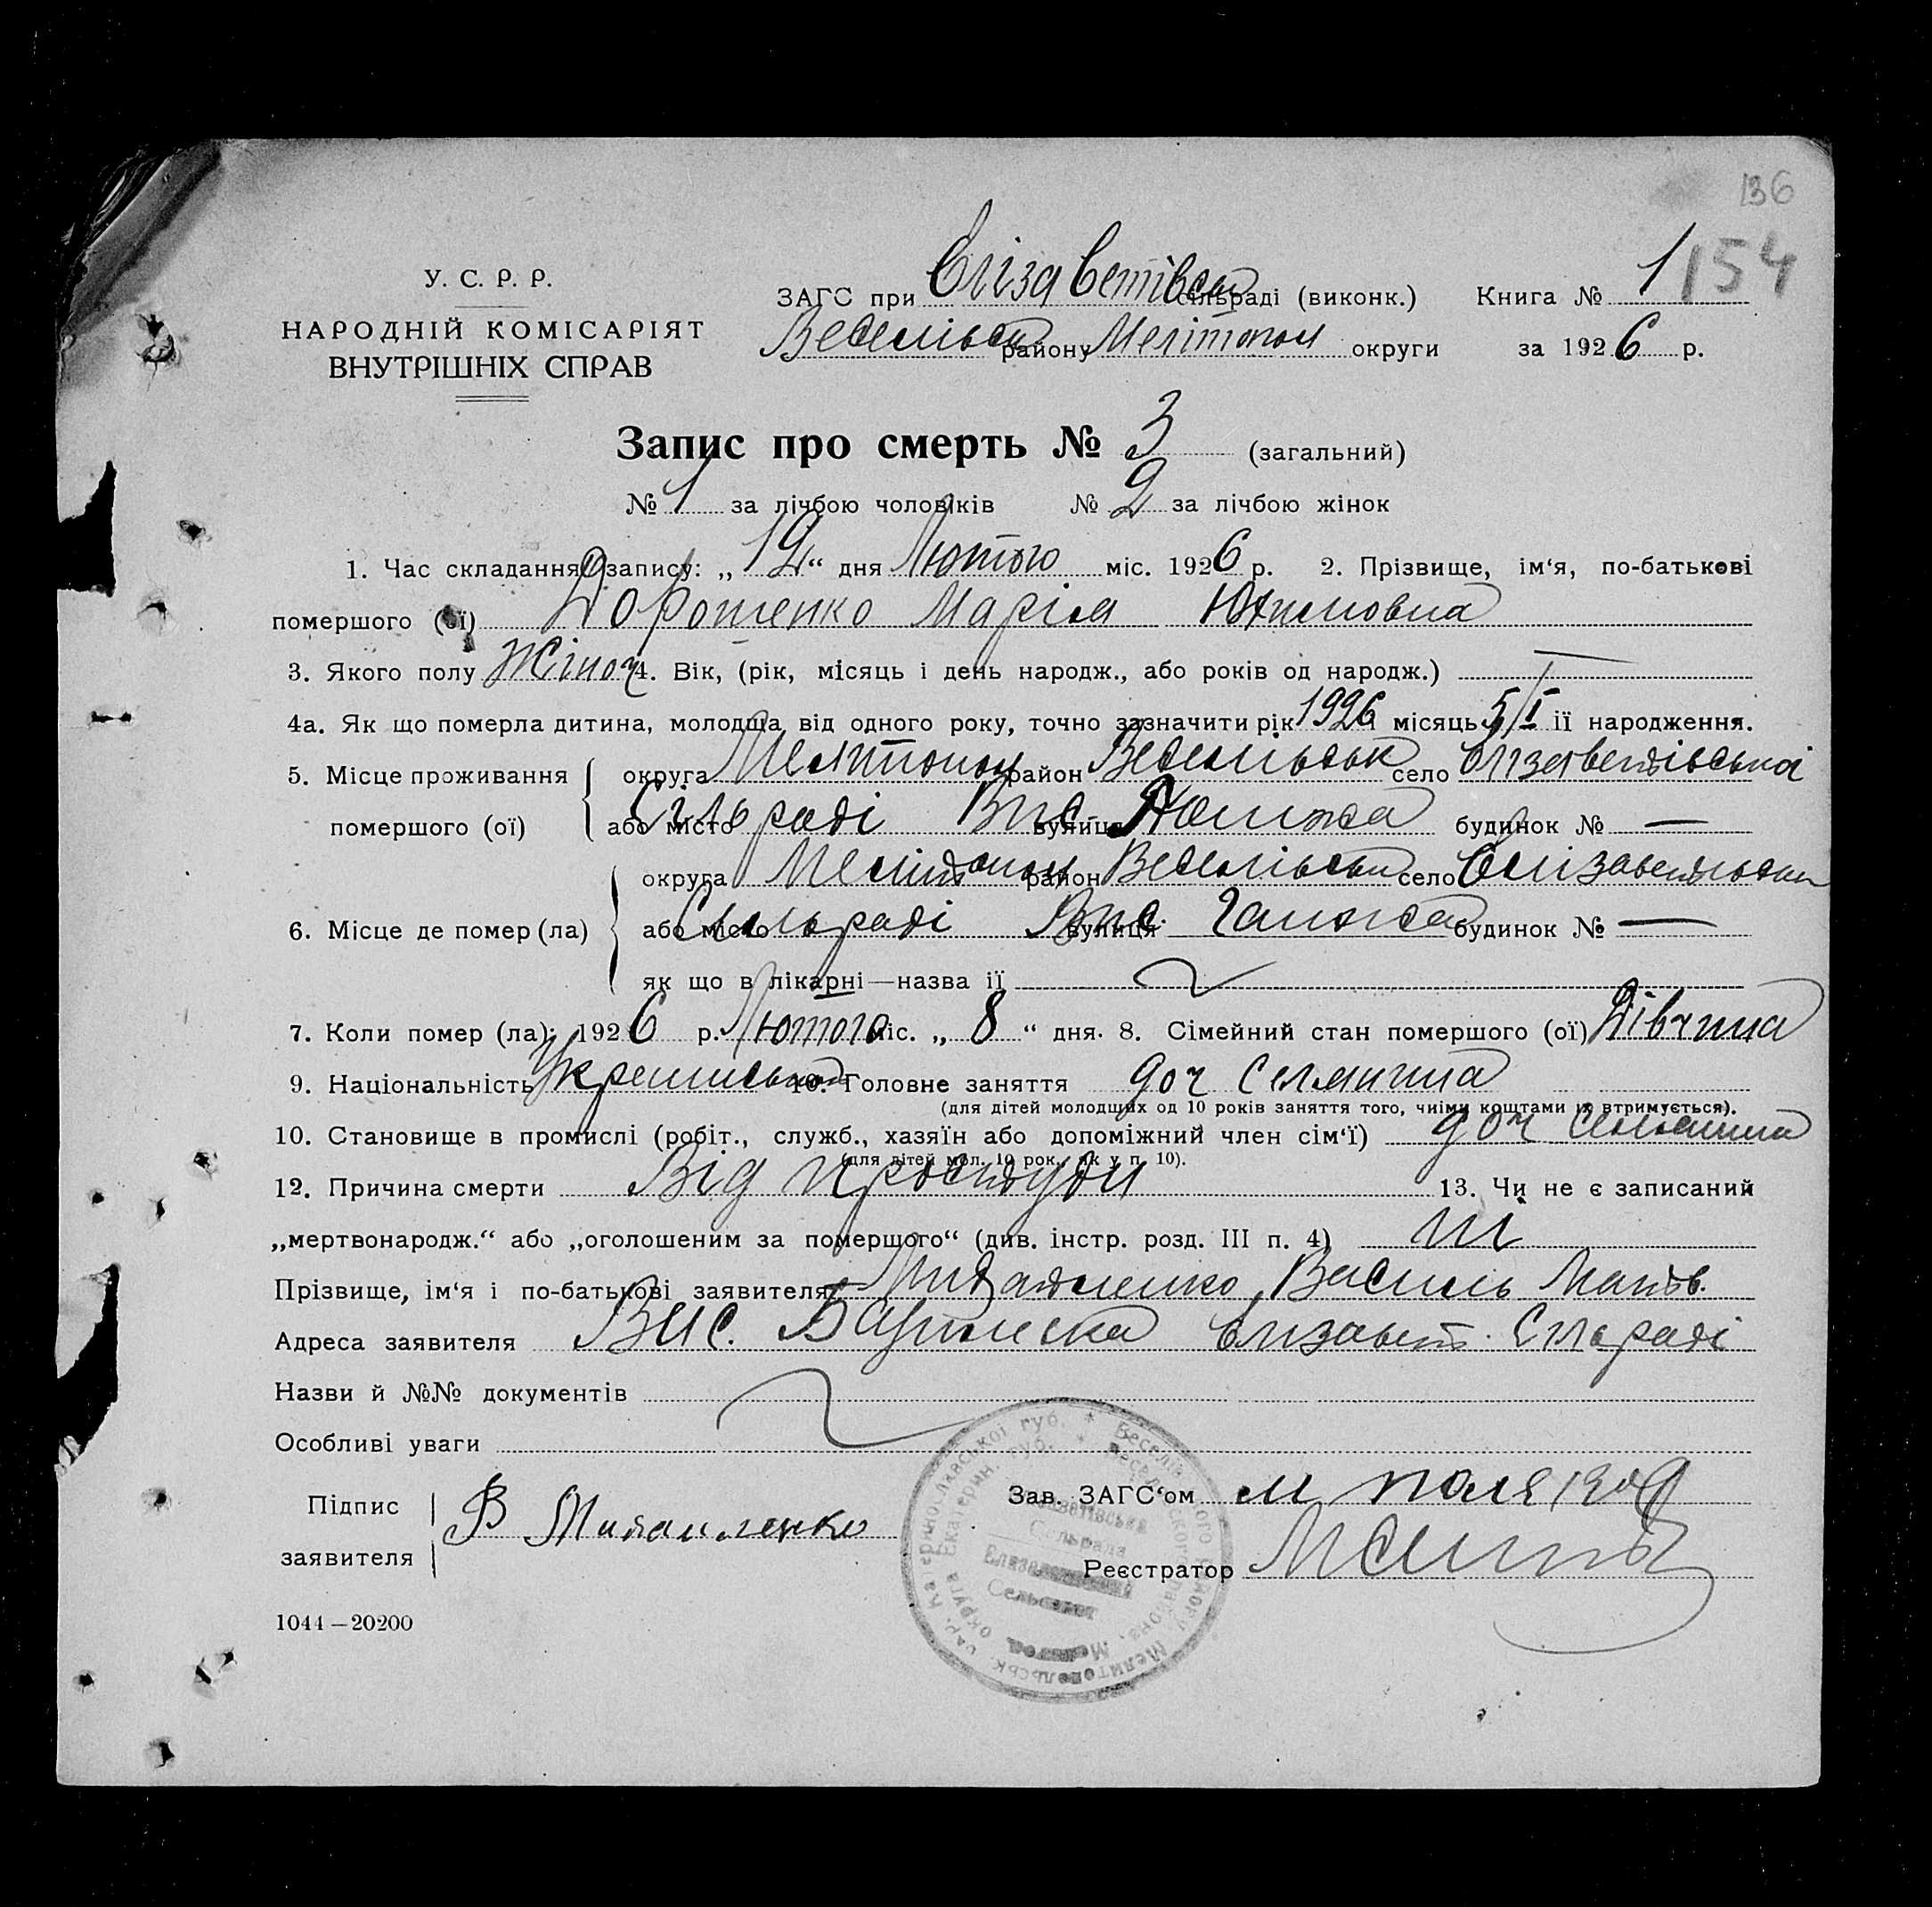 136
154
У. С. Р. Р.
НАРОДНІЙ КОМІСАРІЯТ
ВНУТРІШНІХ СПРАВ
ЗАГС при Єлізаветівськ сільраді (виконк.) Книга № 1
Веселівськ району Мелітопол округи за 1926 р.
Запис про смерть № 3 (загальний)
№ 1 за лічбою чоловіків № 2 за лічбою жінок
1. Час складання запису: „12“ дня Лютого міс. 1926 р. 2. Прізвище, ім‘я, по-батькові
помершого (ої) Дорошенко Марія Юхимовна
3. Якого полу Жіноч 4. Вік, (рік, місяць і день народж., або років од народж.)
4а. Як що померла дитина, молодща від одного року, точно зазначити рік 1926 місяць 5/I її народження.
5. Місце проживання округа Мелітопол район Веселівськ село Єлізаветівської
помершого (ої) або місто Сільраді Вис. вулиця будинок № —
округа Мелітопол район Веселівськ село Єлізаветівськ
6. Місце де помер (ла) або місто Сільраді Вис. вулиця будинок № —
як що в лікарні—назва її
7. Коли помер (ла): 1926 р. Лютого міс. „8“ дня. 8. Сімейний стан помершого (ої) Дівчина
9. Національність 10. Головне заняття доч Селянина
(для дітей молодщих од 10 років заняття того, чиїми коштами їх втримується).
10. Становище в промислі (робіт., служб., хазяїн або допоміжний член сім‘ї) доч Селянина
(для дітей мол. 10 рок. як у п. 10).
12. Причина смерти Від простуди 13. Чи не є записаний
„мертвонародж.“ або „оголошеним за помершого“ (див. інстр. розд. III п. 4) ні
Прізвище, ім‘я і по-батькові заявителя Василь Матв.
Адреса заявителя Вис. Єлизавет. Сільраді
Назви й №№ документів
Особливі уваги
Підпис
заявителя В
Зав. ЗАГС‘ом
Реєстратор
1044—20200